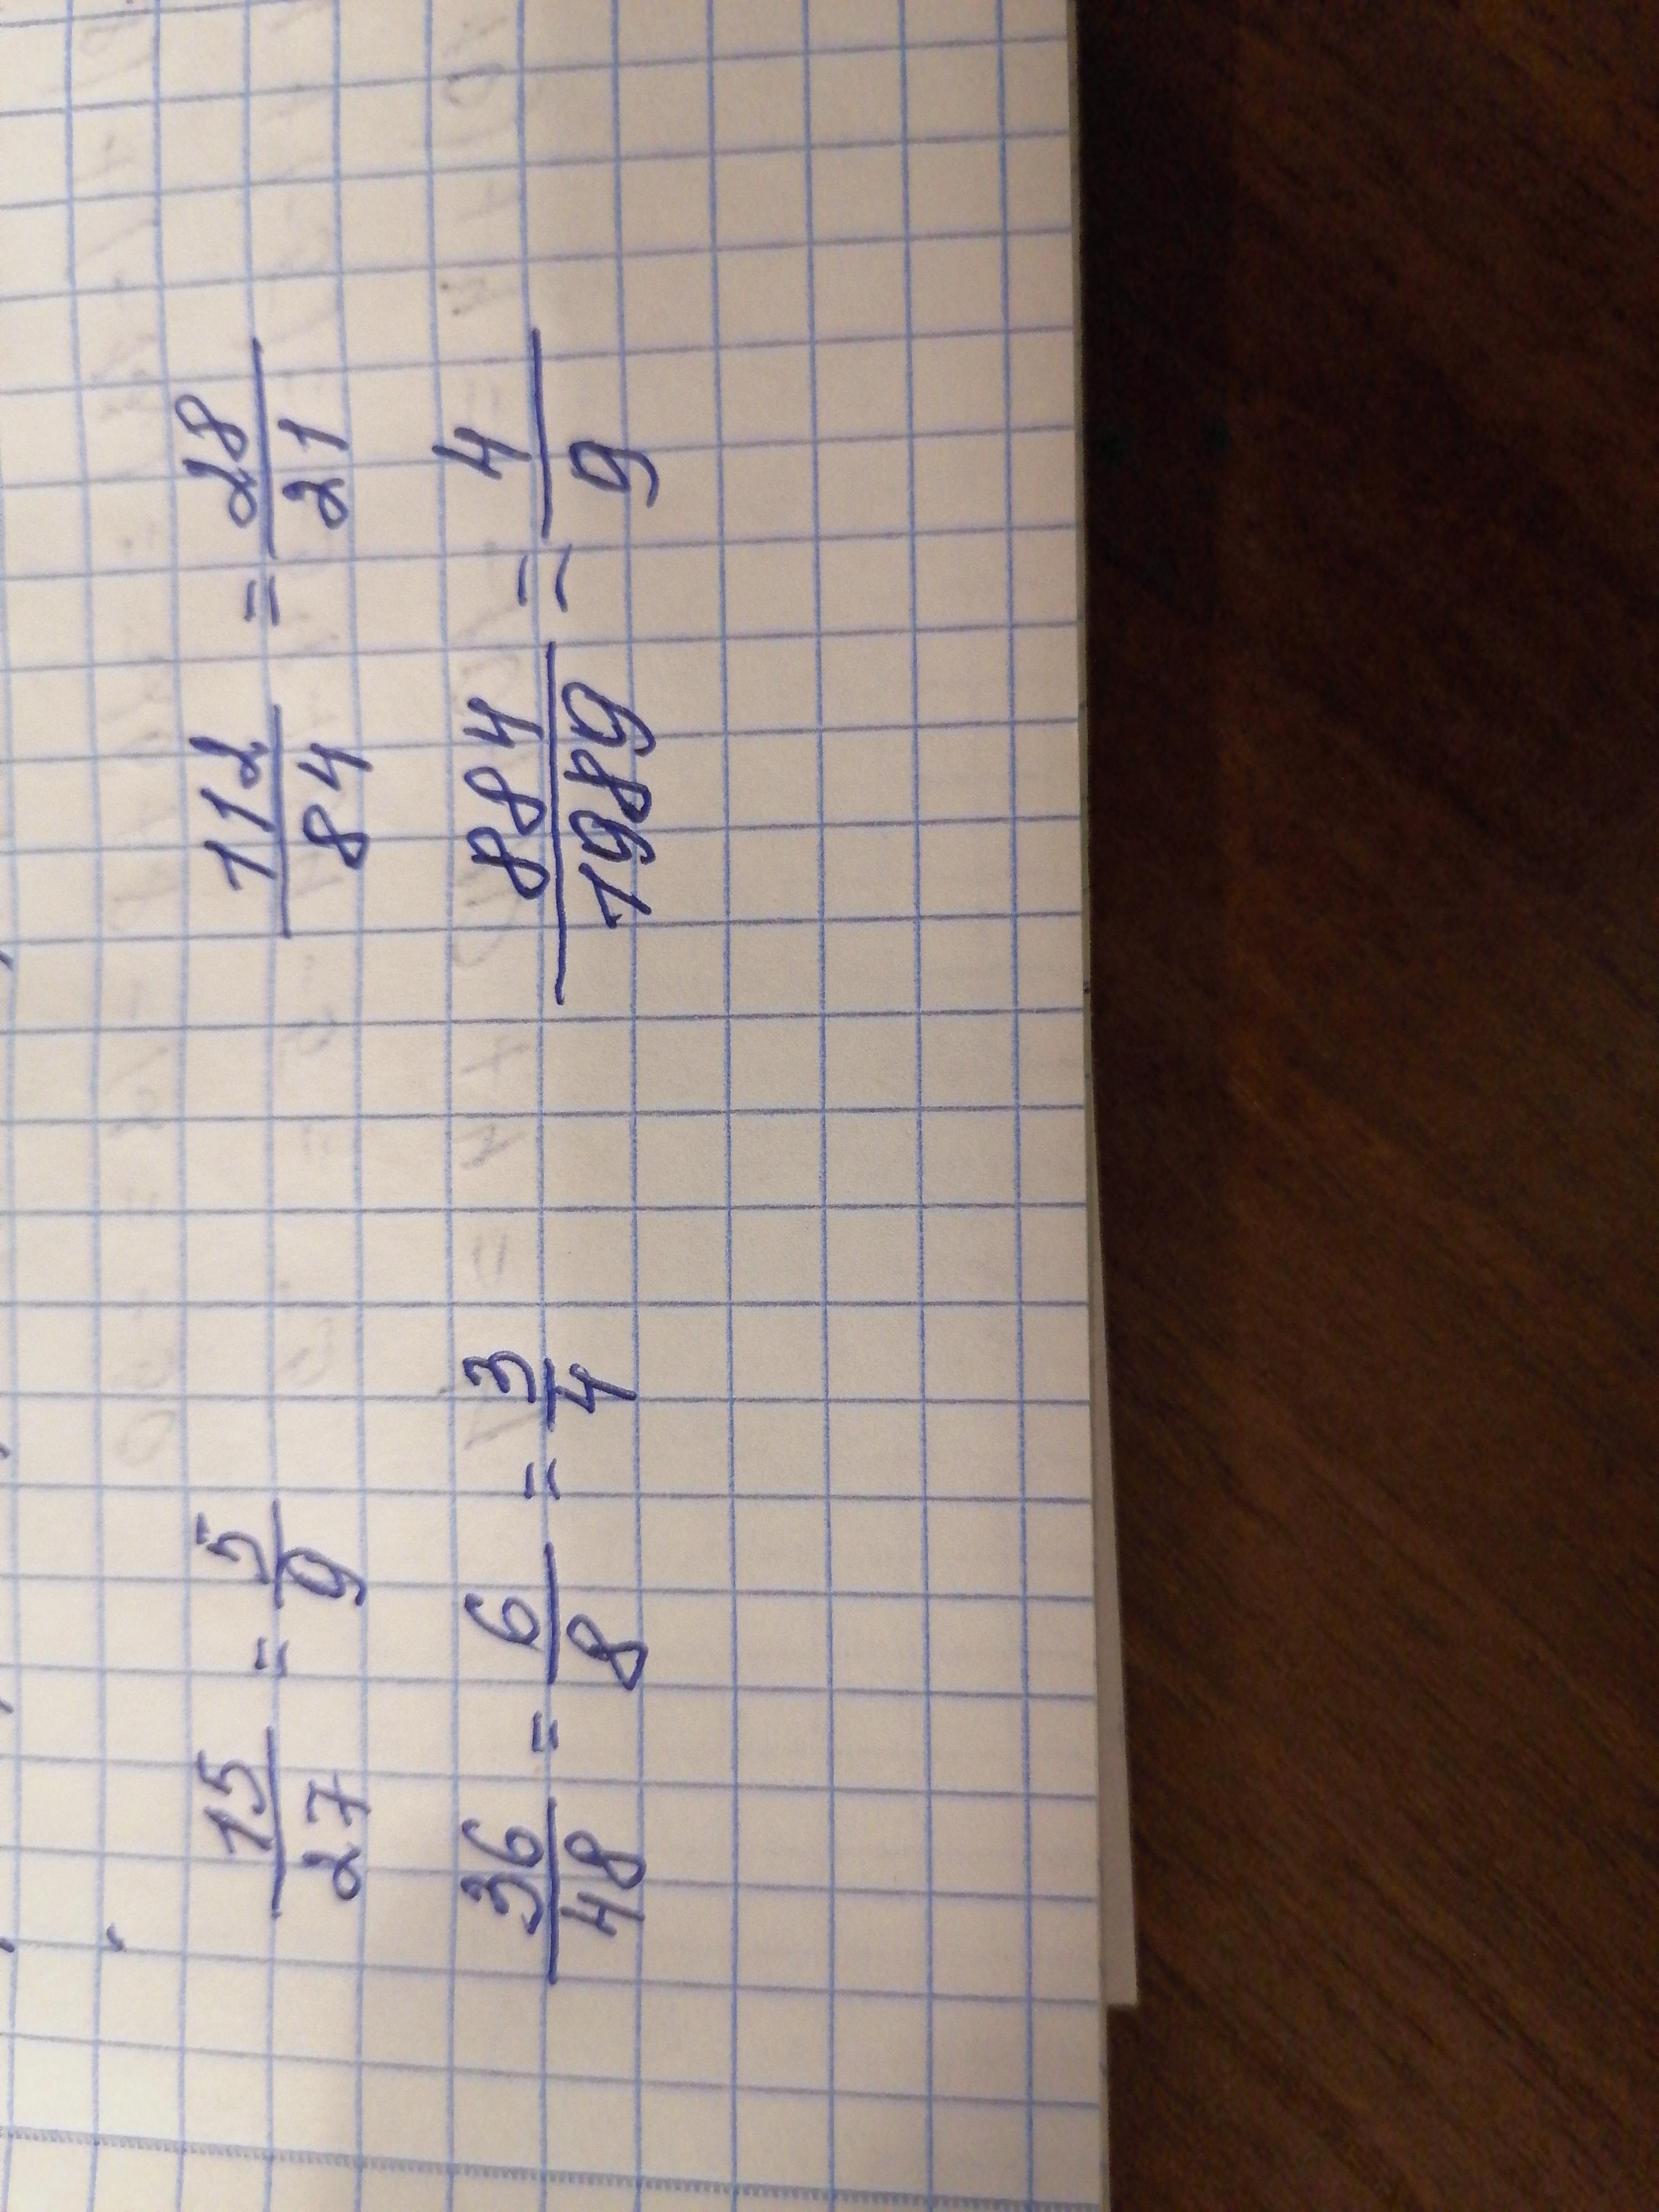 15/27 = 5/9 112/84 = 28/21
36/48 = 6/8 = 3/4 884/1989 = 4/9